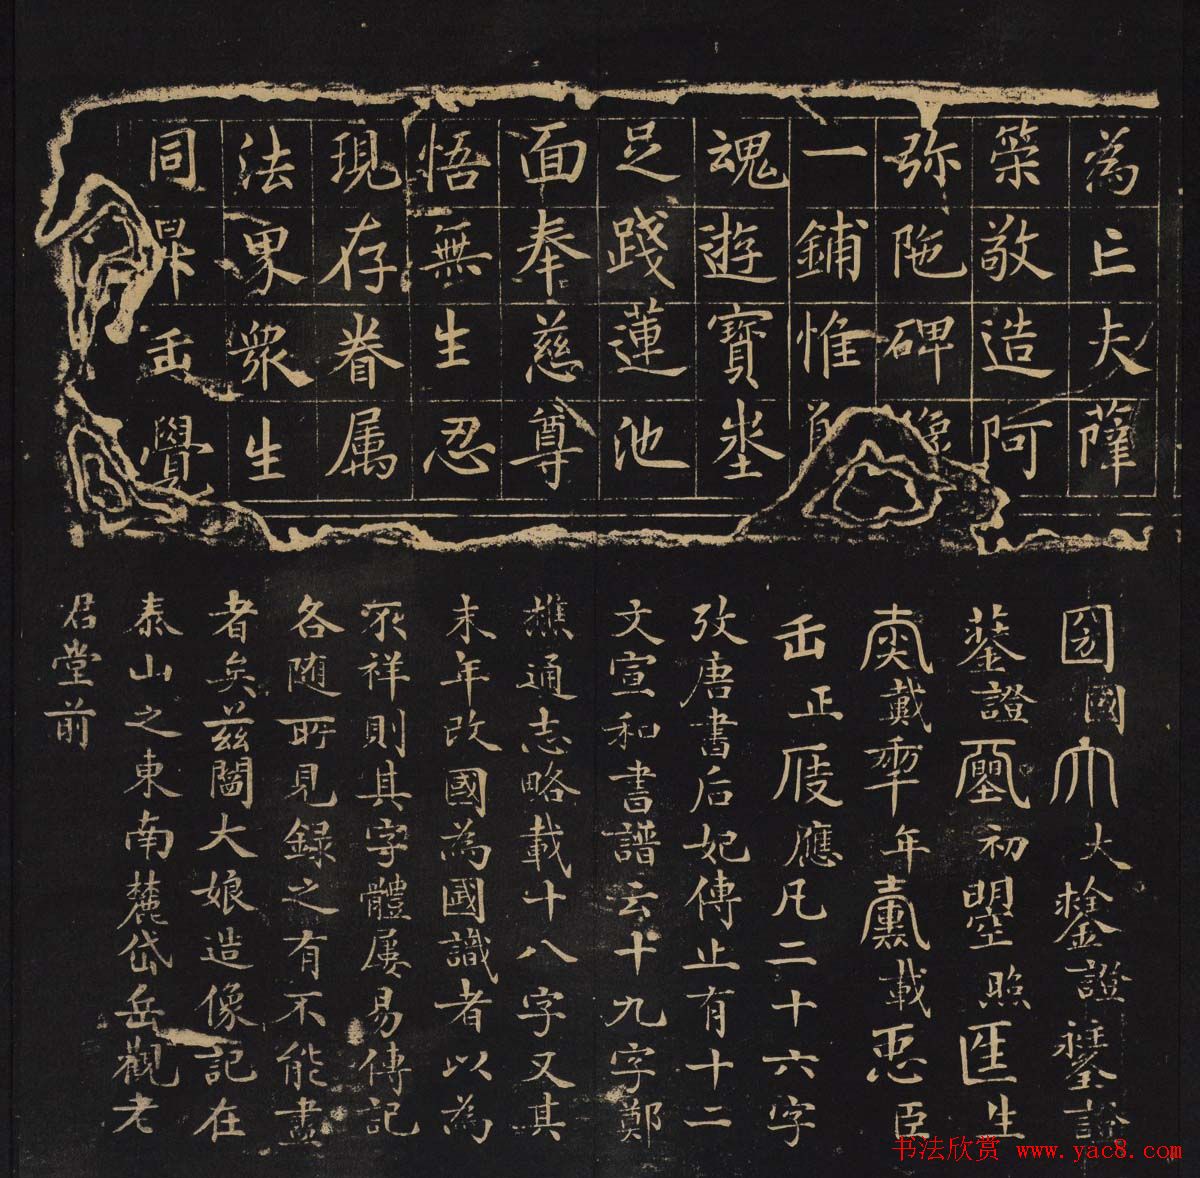 為亡夫薩
築敬造阿
弥陁碑像
一鋪惟
魂遊寶坐
足踐蓮池
面奉慈尊
悟無生忍
現存眷属
法界眾生
同昇𠙺覺
圀國大證證
證初曌照生
𠡦年載𢘑臣
𠙺正應凡二十六字
攷唐書后妃傳止有十二
文宣和書譜云十九字鄭
樵通志略載十八字又其
末年改國為國識者以為
不祥則其字體屢易傳記
各随所見録之有不能盡
者矣茲闔大娘造像記在
泰山之東南麓岱岳觀老
君堂前
书法欣赏 www.yac8.com